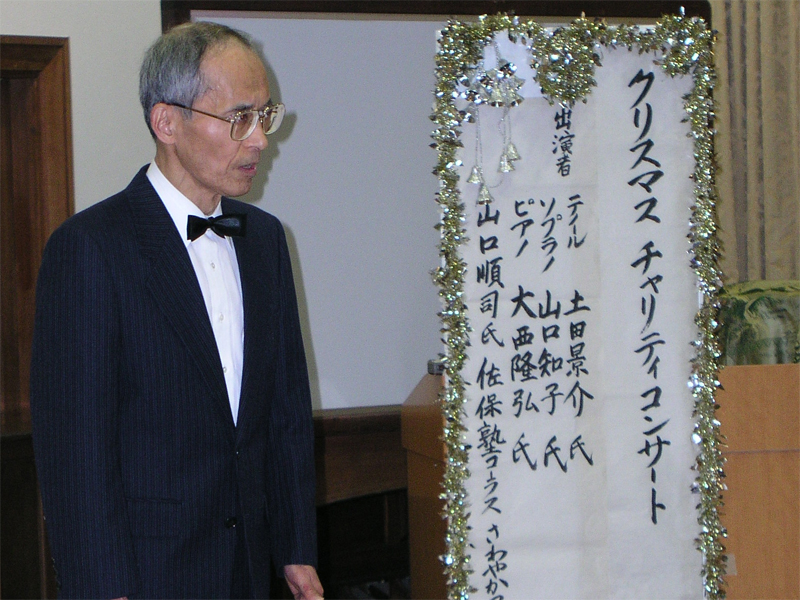 クリスマス チャリティコンサート
出演者
テノール 土田景介 氏
ソプラノ 山口知子 氏
ピアノ 大西隆弘 氏
山口順司氏 佐保塾コーラス さわやか